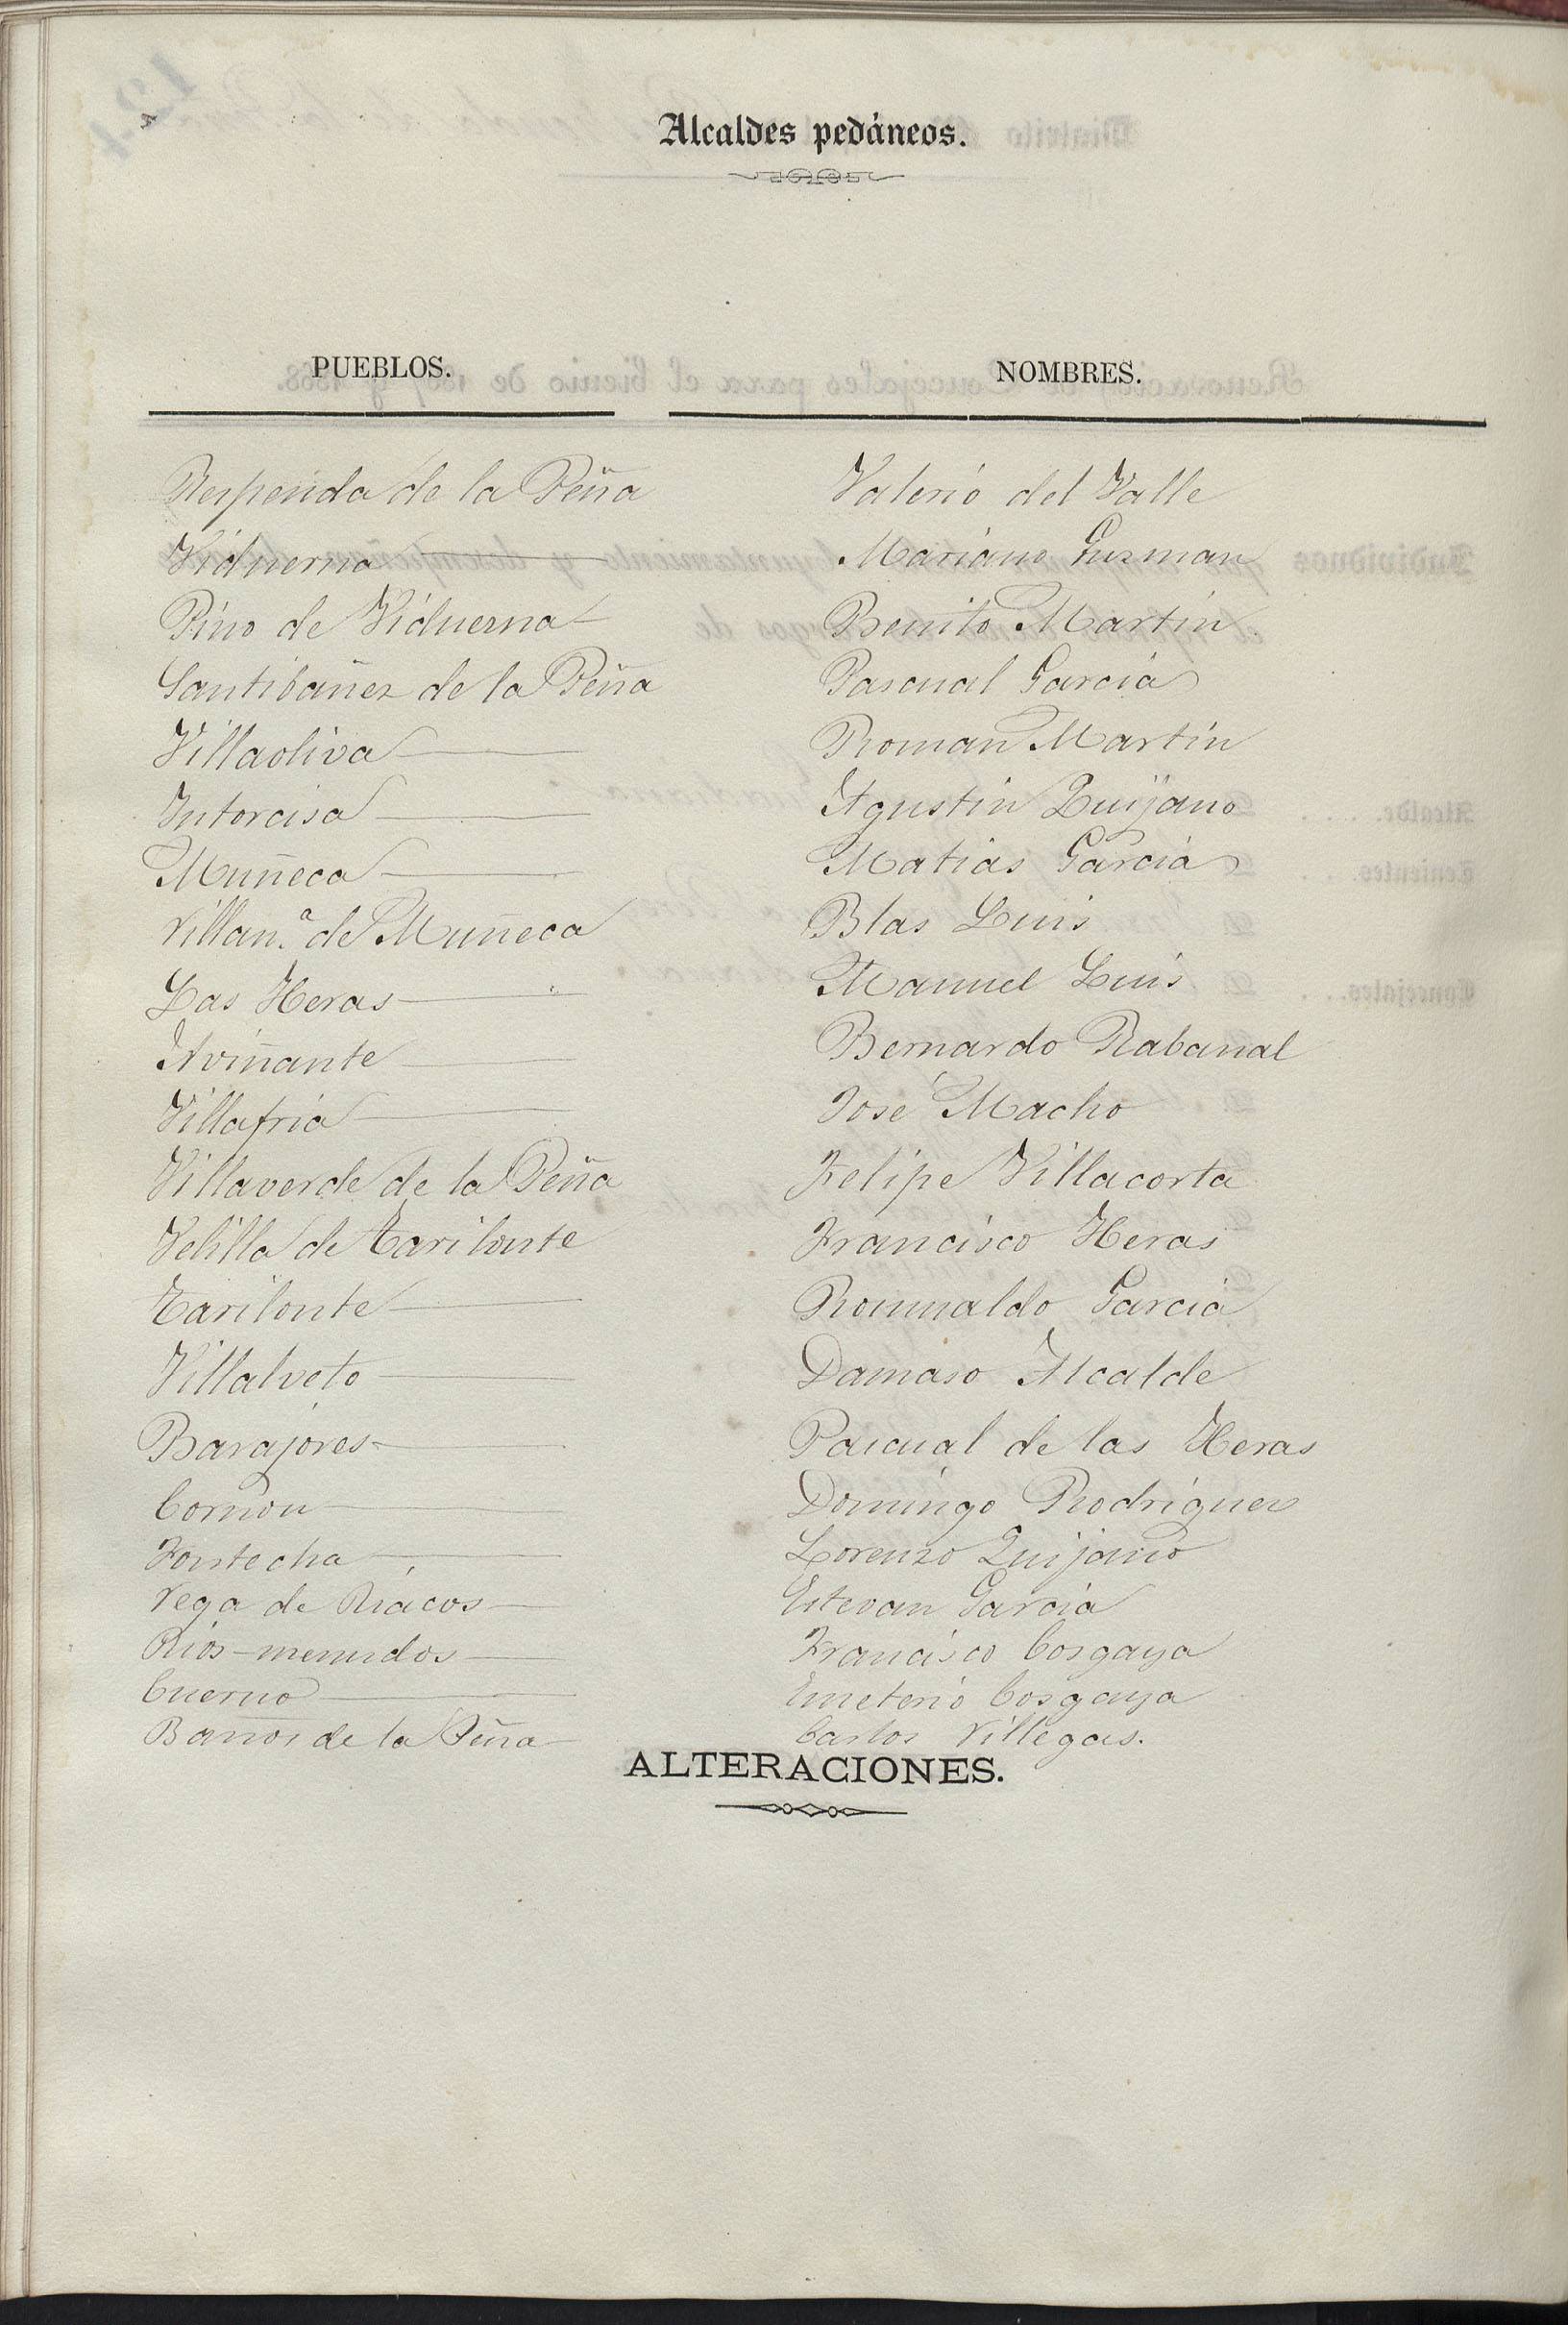 Alcaldes pedáneos.
PUEBLOS. NOMBRES.
Respenda de la Peña Valerio del Valle
Viduerna Mariano Guzman
Pino de Viduerna Benito Martin
Santibañez de la Peña Pascual Garcia
Villaoliva Roman Martin
Intorcisa Agustin Quijano
Muñeca Matias Garcia
Villan.ª de Muñeca Blas Luis
Las Heras Manuel Luis
Aviñante Bernardo Rabanal
Villafria José Macho
Villaverde de la Peña Felipe Villacorta
Velilla de Tarilonte Francisco Heras
Tarilonte Romualdo Garcia
Villalveto Damaso Alcalde
Barajores Pascual de las Heras
Cornon Domingo Rodriguez
Fontecha Lorenzo Quijano
Vega de Riácos Estevan Garcia
Rios-menudos Francisco Cosgaya
Cuerno Emeterio Cosgaya
Baños de la Peña Carlos Villegas.
ALTERACIONES.